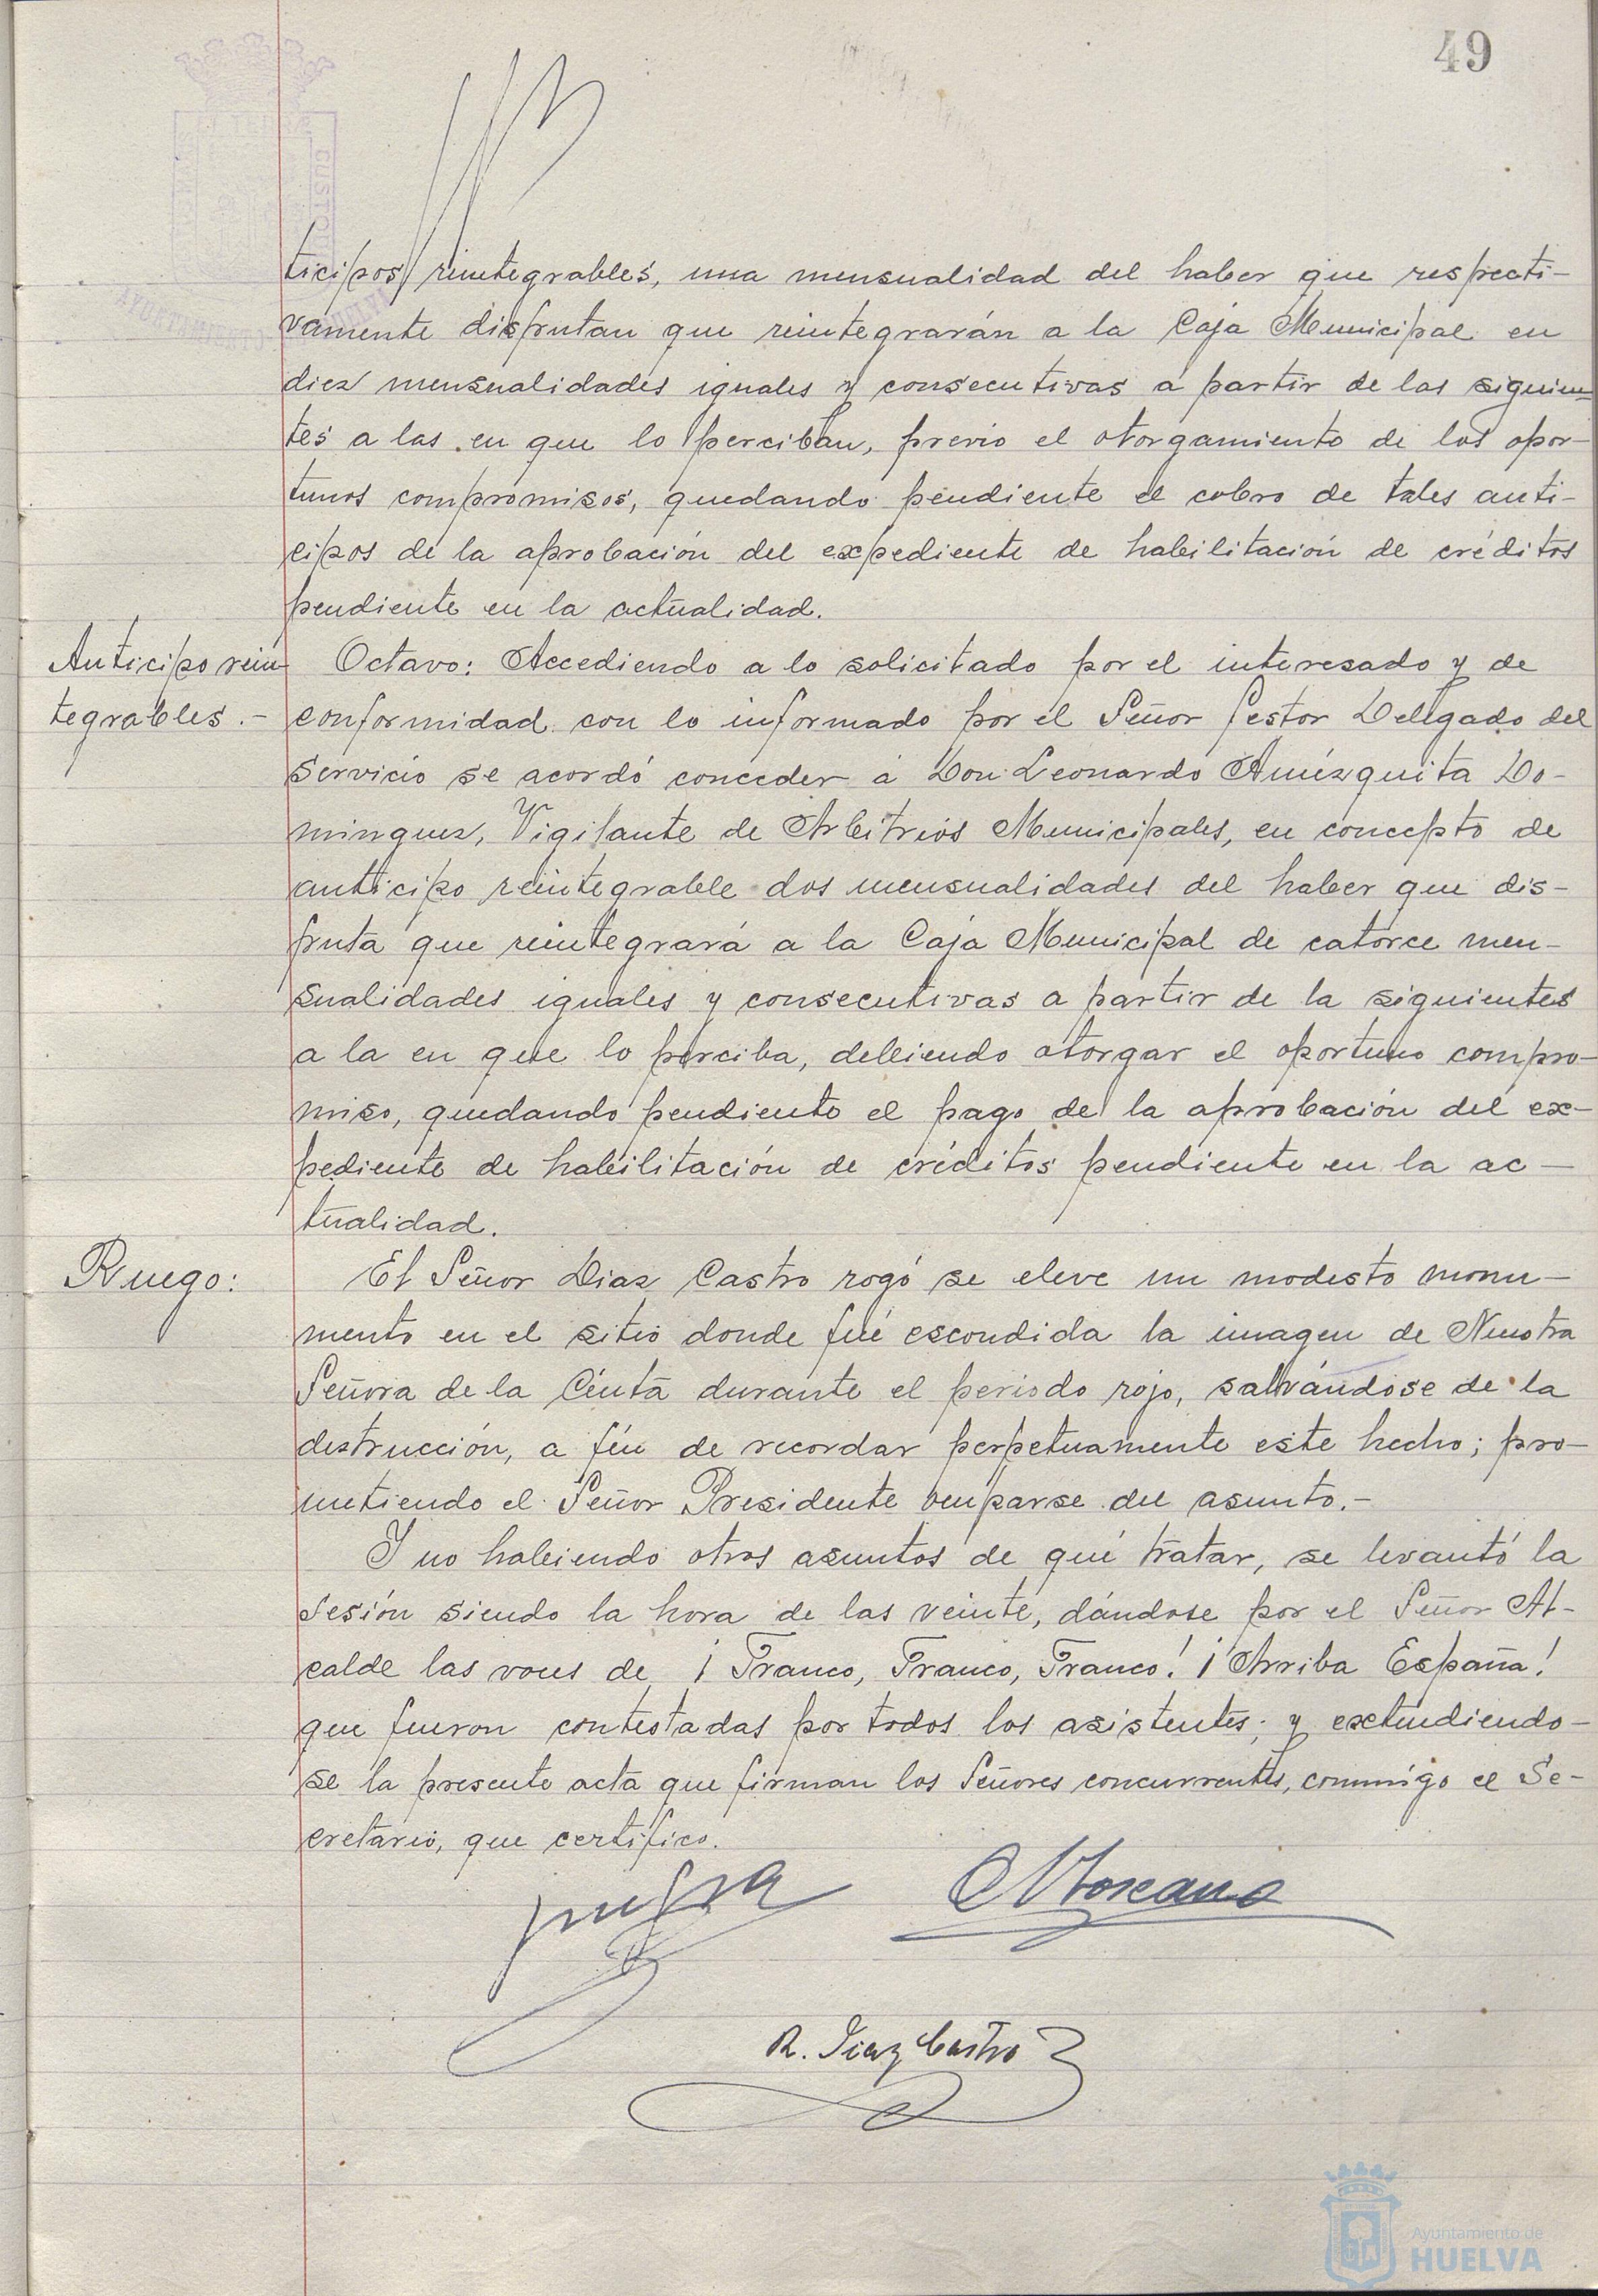 49
ticipos reintegrables, una mensualidad del haber que respecti-
vamente disfrutan que reintegrarán a la Caja Municipal en
diez mensualidades iguales y consecutivas a partir de las siguien-
tes a las en que lo perciban, previo el otorgamiento de los opor-
tunos compromisos, quedando pendiente el cobro de tales anti-
cipos de la aprobación del expediente de habilitación de créditos
pendiente en la actualidad.
Anticipo rein-
tegrables.-
Octavo: Accediendo a lo solicitado por el interesado y de
conformidad con lo informado por el Señor Gestor Delegado del
Servicio se acordó conceder a Don Leonardo Amézquita Do-
minguez, Vigilante de Arbitrios Municipales, en concepto de
anticipo reintegrable dos mensualidades del haber que dis-
fruta que reintegrará a la Caja Municipal de catorce men-
sualidades iguales y consecutivas a partir de la siguientes
a la en que lo perciba, debiendo otorgar el oportuno compro-
miso, quedando pendiente el pago de la aprobación del ex-
pediente de habilitación de créditos pendiente en la ac-
tualidad.
Ruego:
El Señor Diaz Castro rogó se eleve un modesto monu-
mento en el sitio donde fué escondida la imagen de Nuestra
Señora de la Cinta durante el periodo rojo, salvándose de la
destrucción, a fin de recordar perpetuamente este hecho; pro-
metiendo el Señor Presidente ocuparse del asunto.-
Y no habiendo otros asuntos de qué tratar, se levantó la
sesión siendo la hora de las veinte, dándose por el Señor Al-
calde las voces de ¡Franco, Franco, Franco! ¡Arriba España!
que fueron contestadas por todos los asistentes; y extendiendo-
se la presente acta que firman los Señores concurrentes, conmigo el Se-
cretario, que certifico.
R. Diaz Castro
Ayuntamiento de
HUELVA